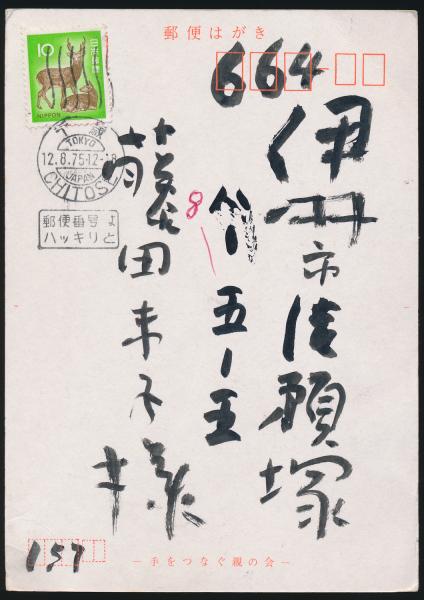 郵便はがき
10
日本郵便
NIPPON
千歳
TOKYO
12.8.75.12-18
JAPAN
CHITOSE
郵便番号は
ハッキリと
664
伊丹市
願塚
8
五ー五
藤田
子様
157
ー手をつなぐ親の会ー